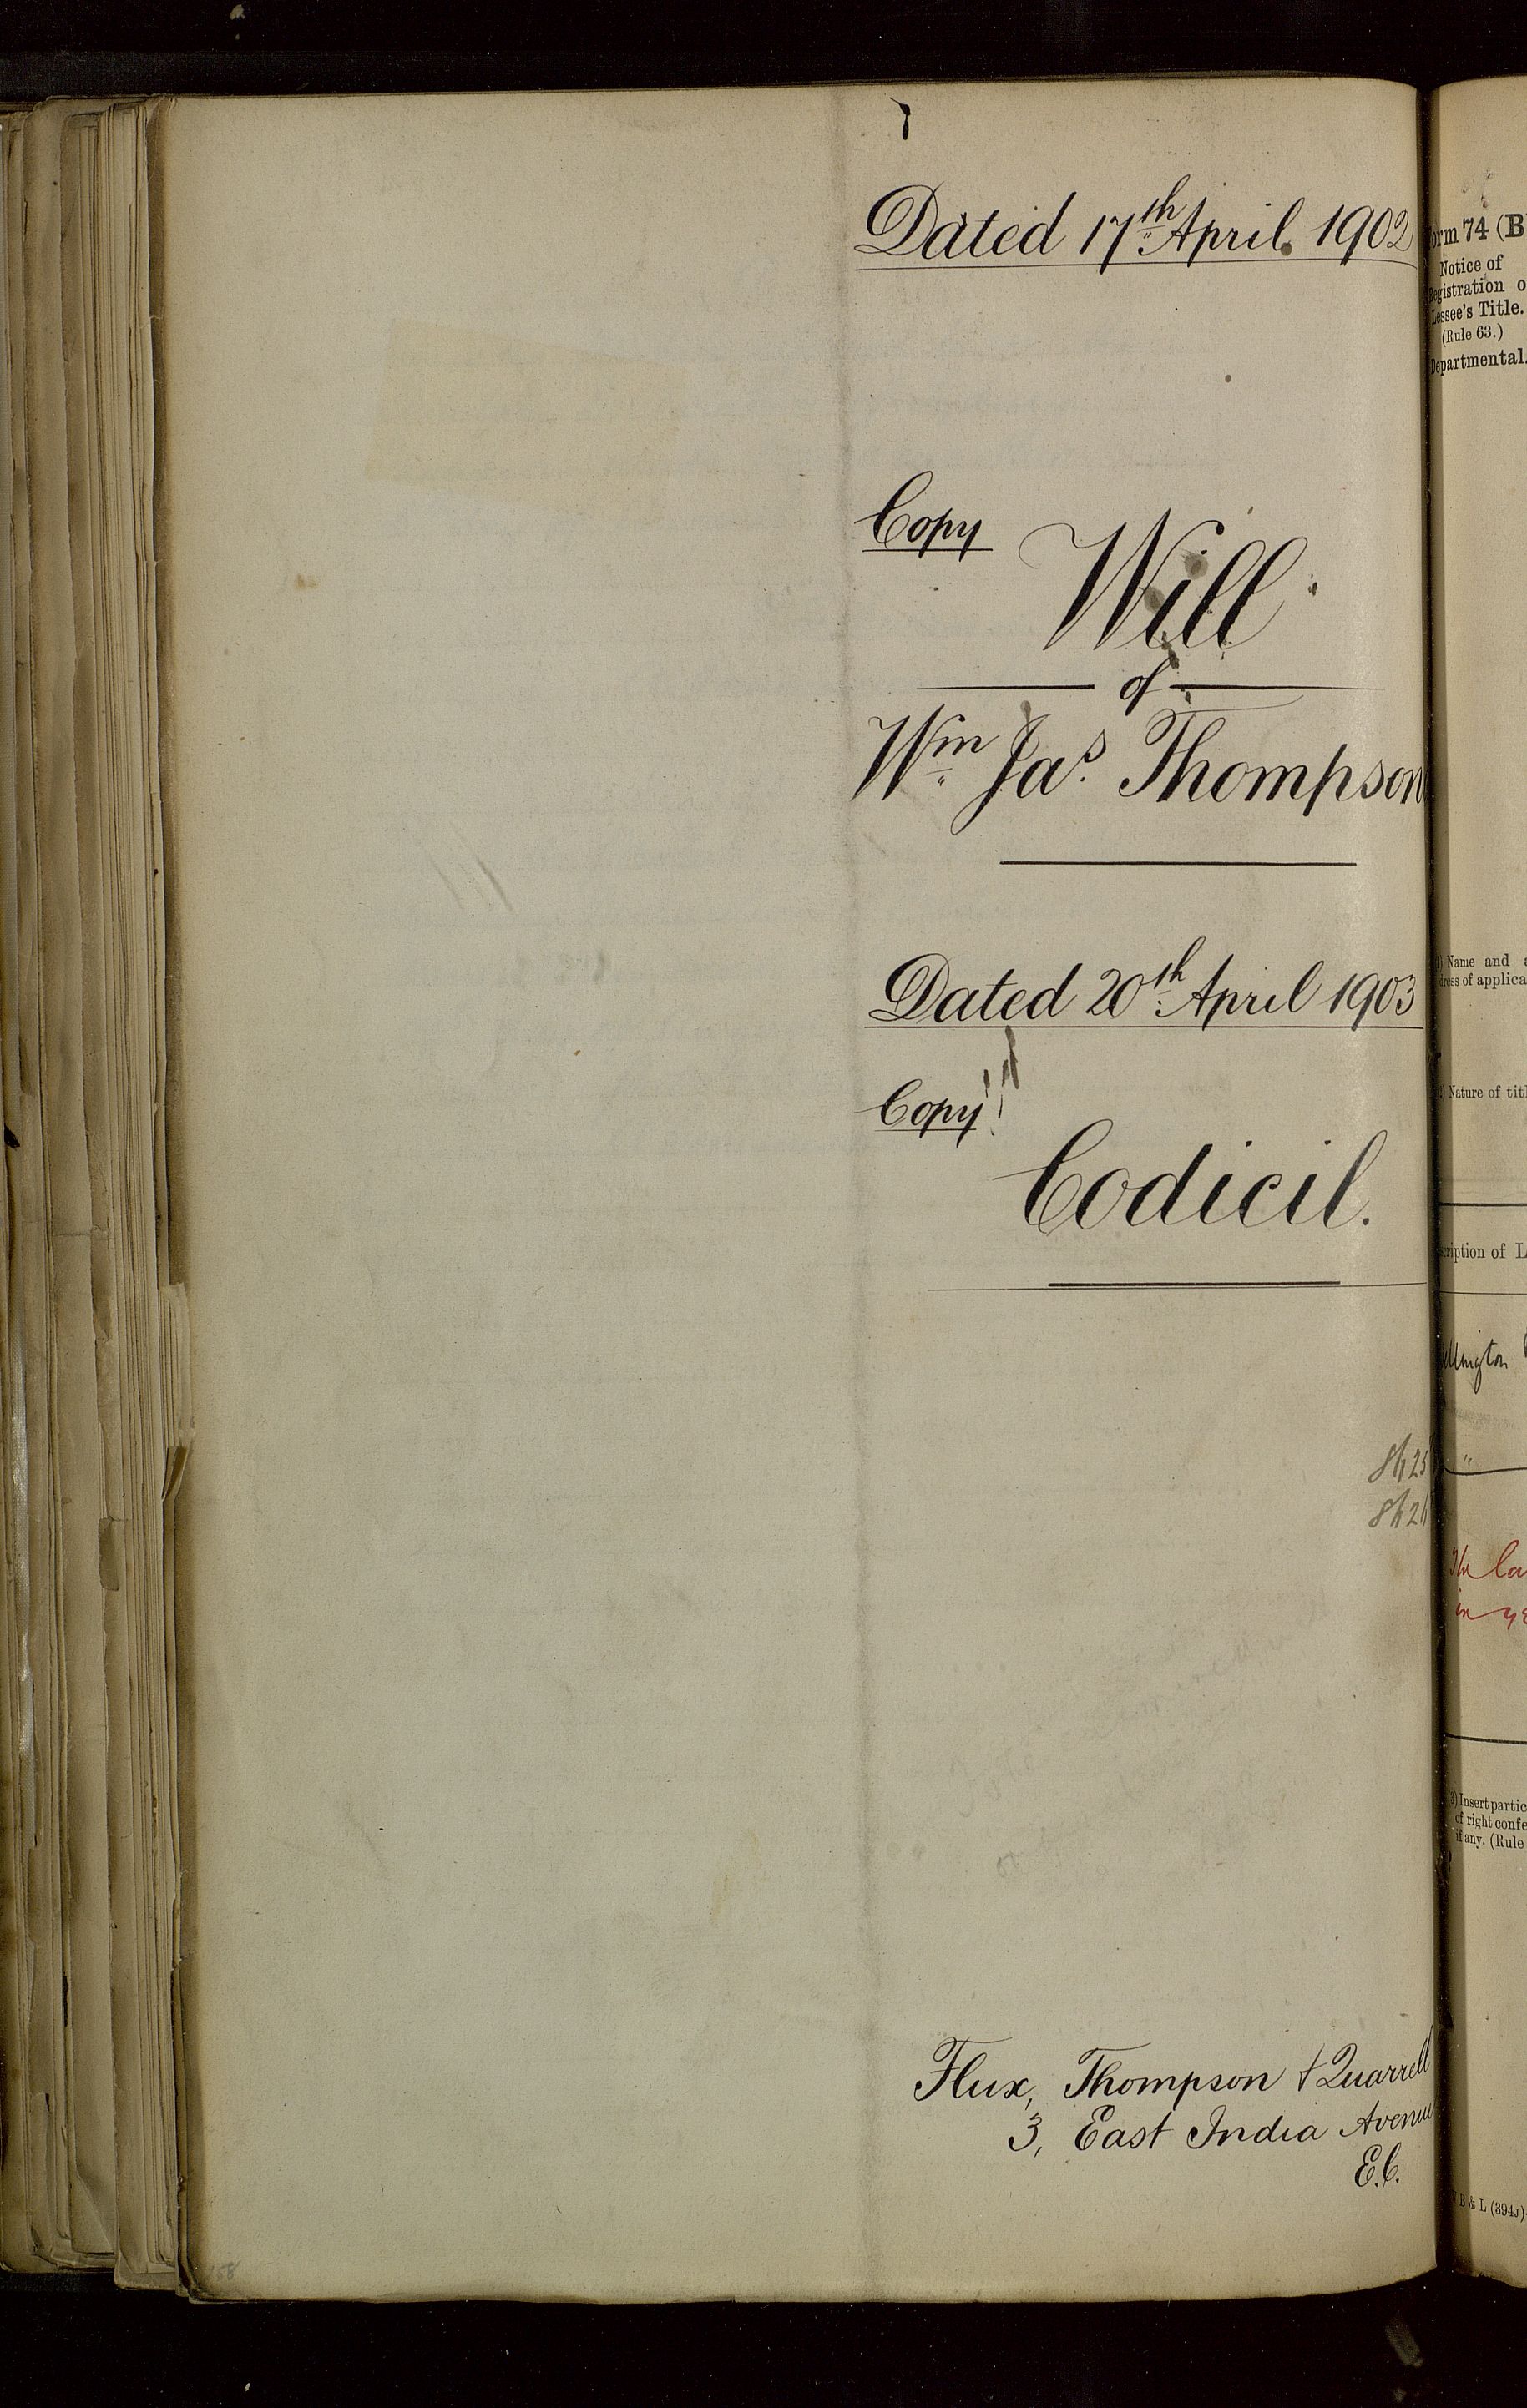 Dated 17th April. 1902
Copy
Will
of
Wm Jas. Thompson
Dated 20th April 1903
Copy
Codicil.
Flux, Thompson & Quarrell
3, East India Avenue
E.C.
158
Form 74 (B
Notice of
Registration o
Lessee's Title.
(Rule 63.)
Departmental.
Name and a
dress of applica
Nature of titl
cription of L
ellington
"
The la
in
(3) Insert partic
of right confe
if any. (Rule
B & L (394J)